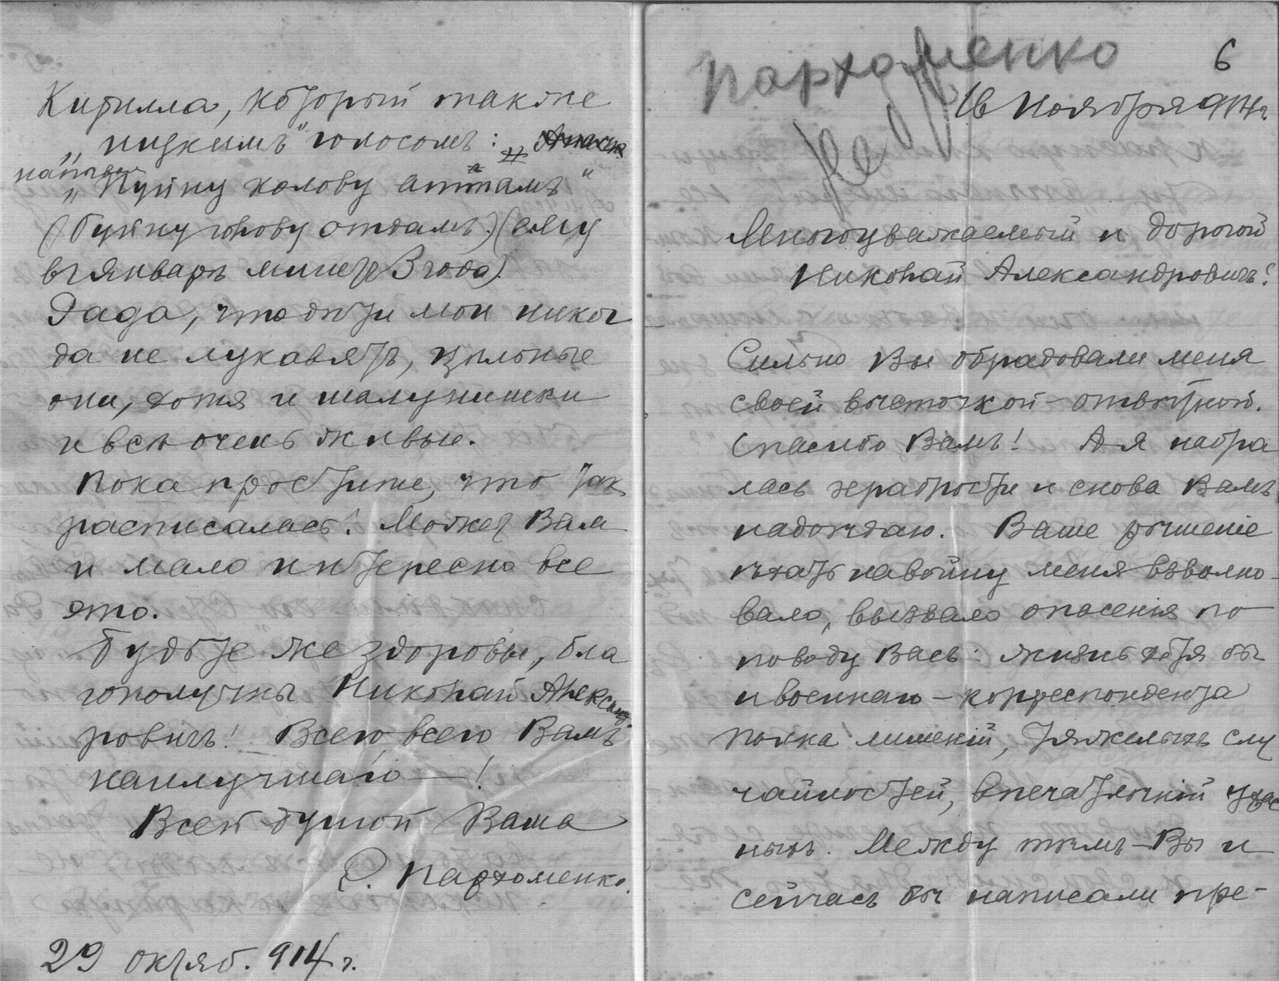 Кирилла, который также
„низкимъ" голосомъ:
напѣваетъ
„Пуйну колову аттамъ"
(Буйну голову отдамъ.) (ему
въ январѣ минетъ 3 года)
Рада, что дѣти мои никог
да не лукавятъ, цѣльные
они, хотя и шалунишки
и всѣ очень живые.
Пока простите, что такъ
расписалась! Можетъ Вам
и мало интересно все
это.
Будьте же здоровы, бла
гополучны Николай Александ
ровичъ! Всего, всего Вамъ
наилучшаго —!
Всей душой Ваша
Р. Пархоменко.
29 октяб. 914 г.
Пархоменко
6
16 Ноября 914 г.
Многоуважаемый и дорогой
Николай Александровичъ!
Сильно Вы обрадовали меня
своей вѣсточкой – отвѣтной.
Спасибо Вамъ! А я набра
лась храбрости и снова Вамъ
надоѣдаю. Ваше рѣшеніе
ѣхать на войну меня взволно-
вало, вызвало опасенія по
поводу Васъ: жизнь хотя бы
и военнаго – корреспондента
полна лишеній, тяжелыхъ слу
чайностей, впечатлѣній ужас
ныхъ. Между тѣмъ – Вы и
сейчасъ бы написали пре-